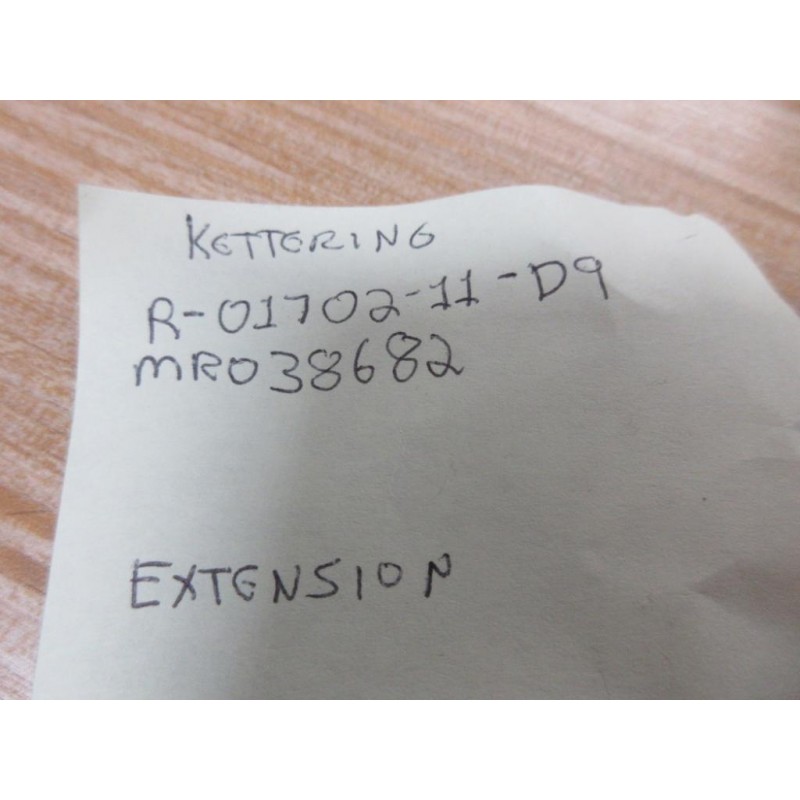 KETTERING
R-01702-11-D9
MRO38682
EXTENSION